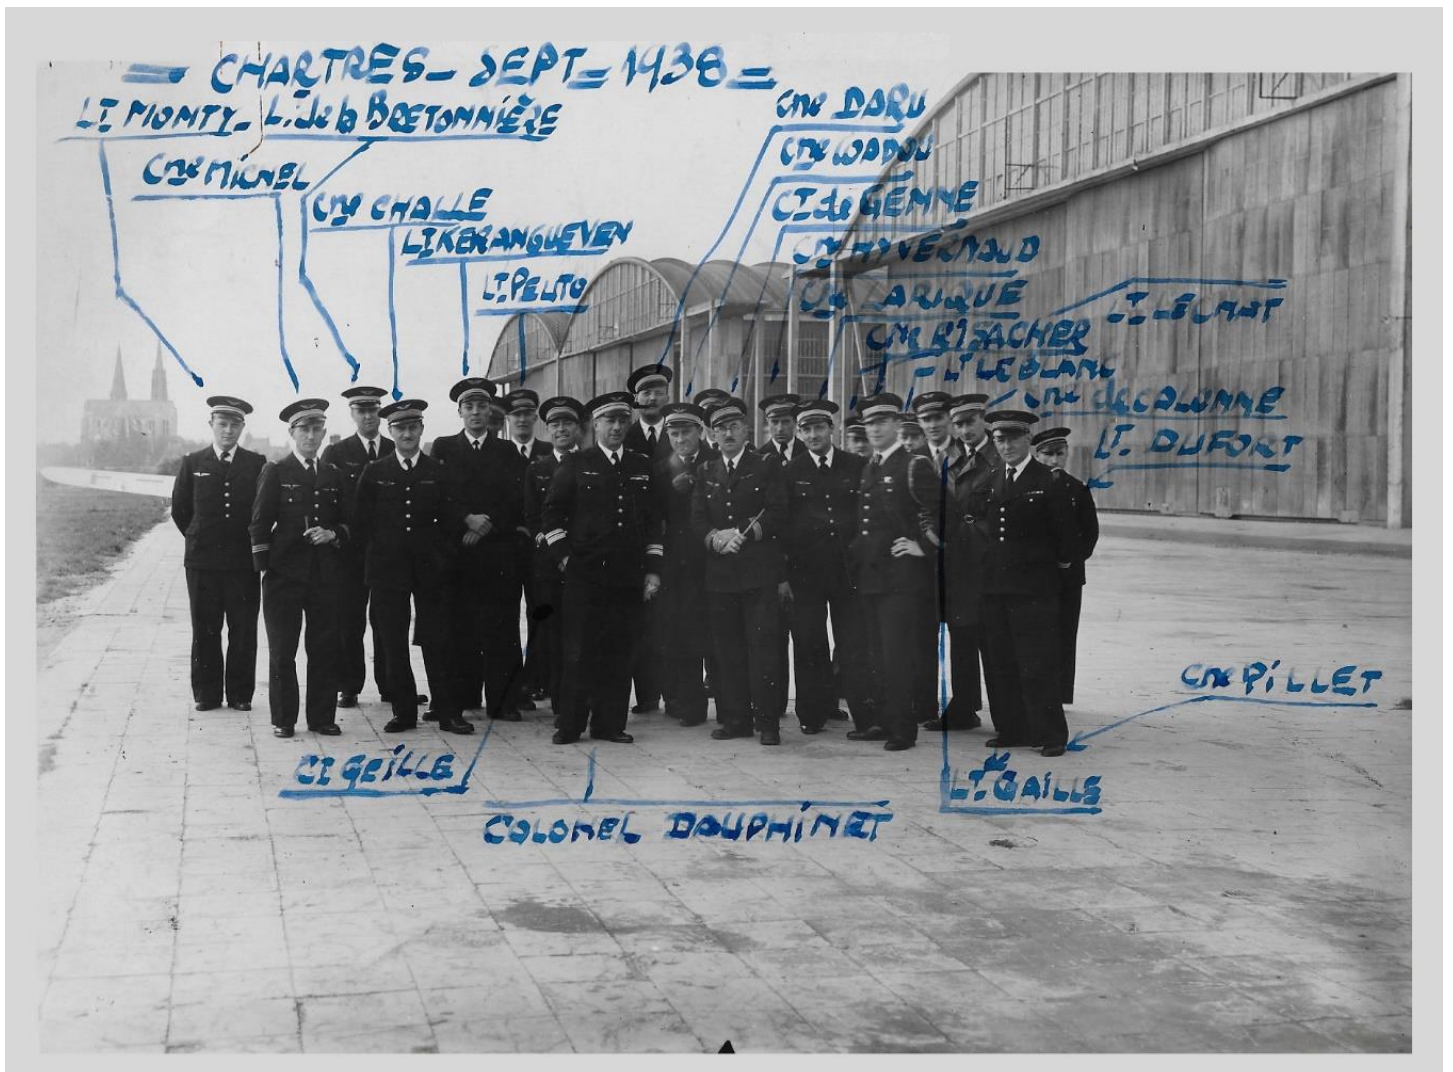 = CHARTRES - SEPT = 1938 =
LT MONTY - Lt de la BRETONNIÈRE
Cne MICHEL
Cne CHALLE
LT KERANGUEVEN
LT PELITO
Cne DARU
Cne COADOU
CT de GEMME
Cne HYVERNAUD
LARIQUE
LT LECMAT
Cne RISACHER
LT LEBLANC
Cne de COLONNE
LT. DUFORT
Cne PILLET
CT GEILLE
LT GAILLE
COLONEL DAUPHINET